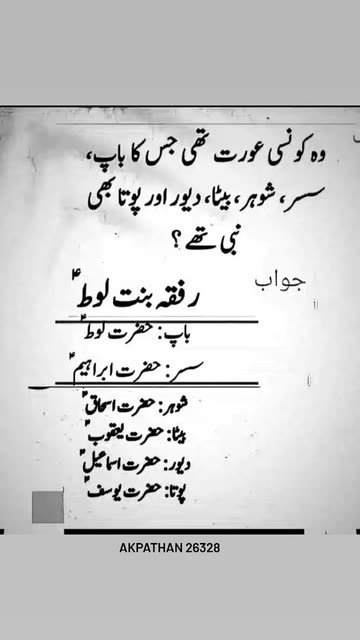 وہ کونسی عورت تھی جس کا باپ،
سسر، شوہر، بیٹا، دیور اور پوتا بھی
نبی تھے؟
جواب
رفقہ بنت لوطؑ
باپ: حضرت لوطؑ
سسر: حضرت ابراہیمؑ
شوہر: حضرت اسحاقؑ
بیٹا: حضرت یعقوبؑ
دیور: حضرت اسماعیلؑ
پوتا: حضرت یوسفؑ
AKPATHAN 26328